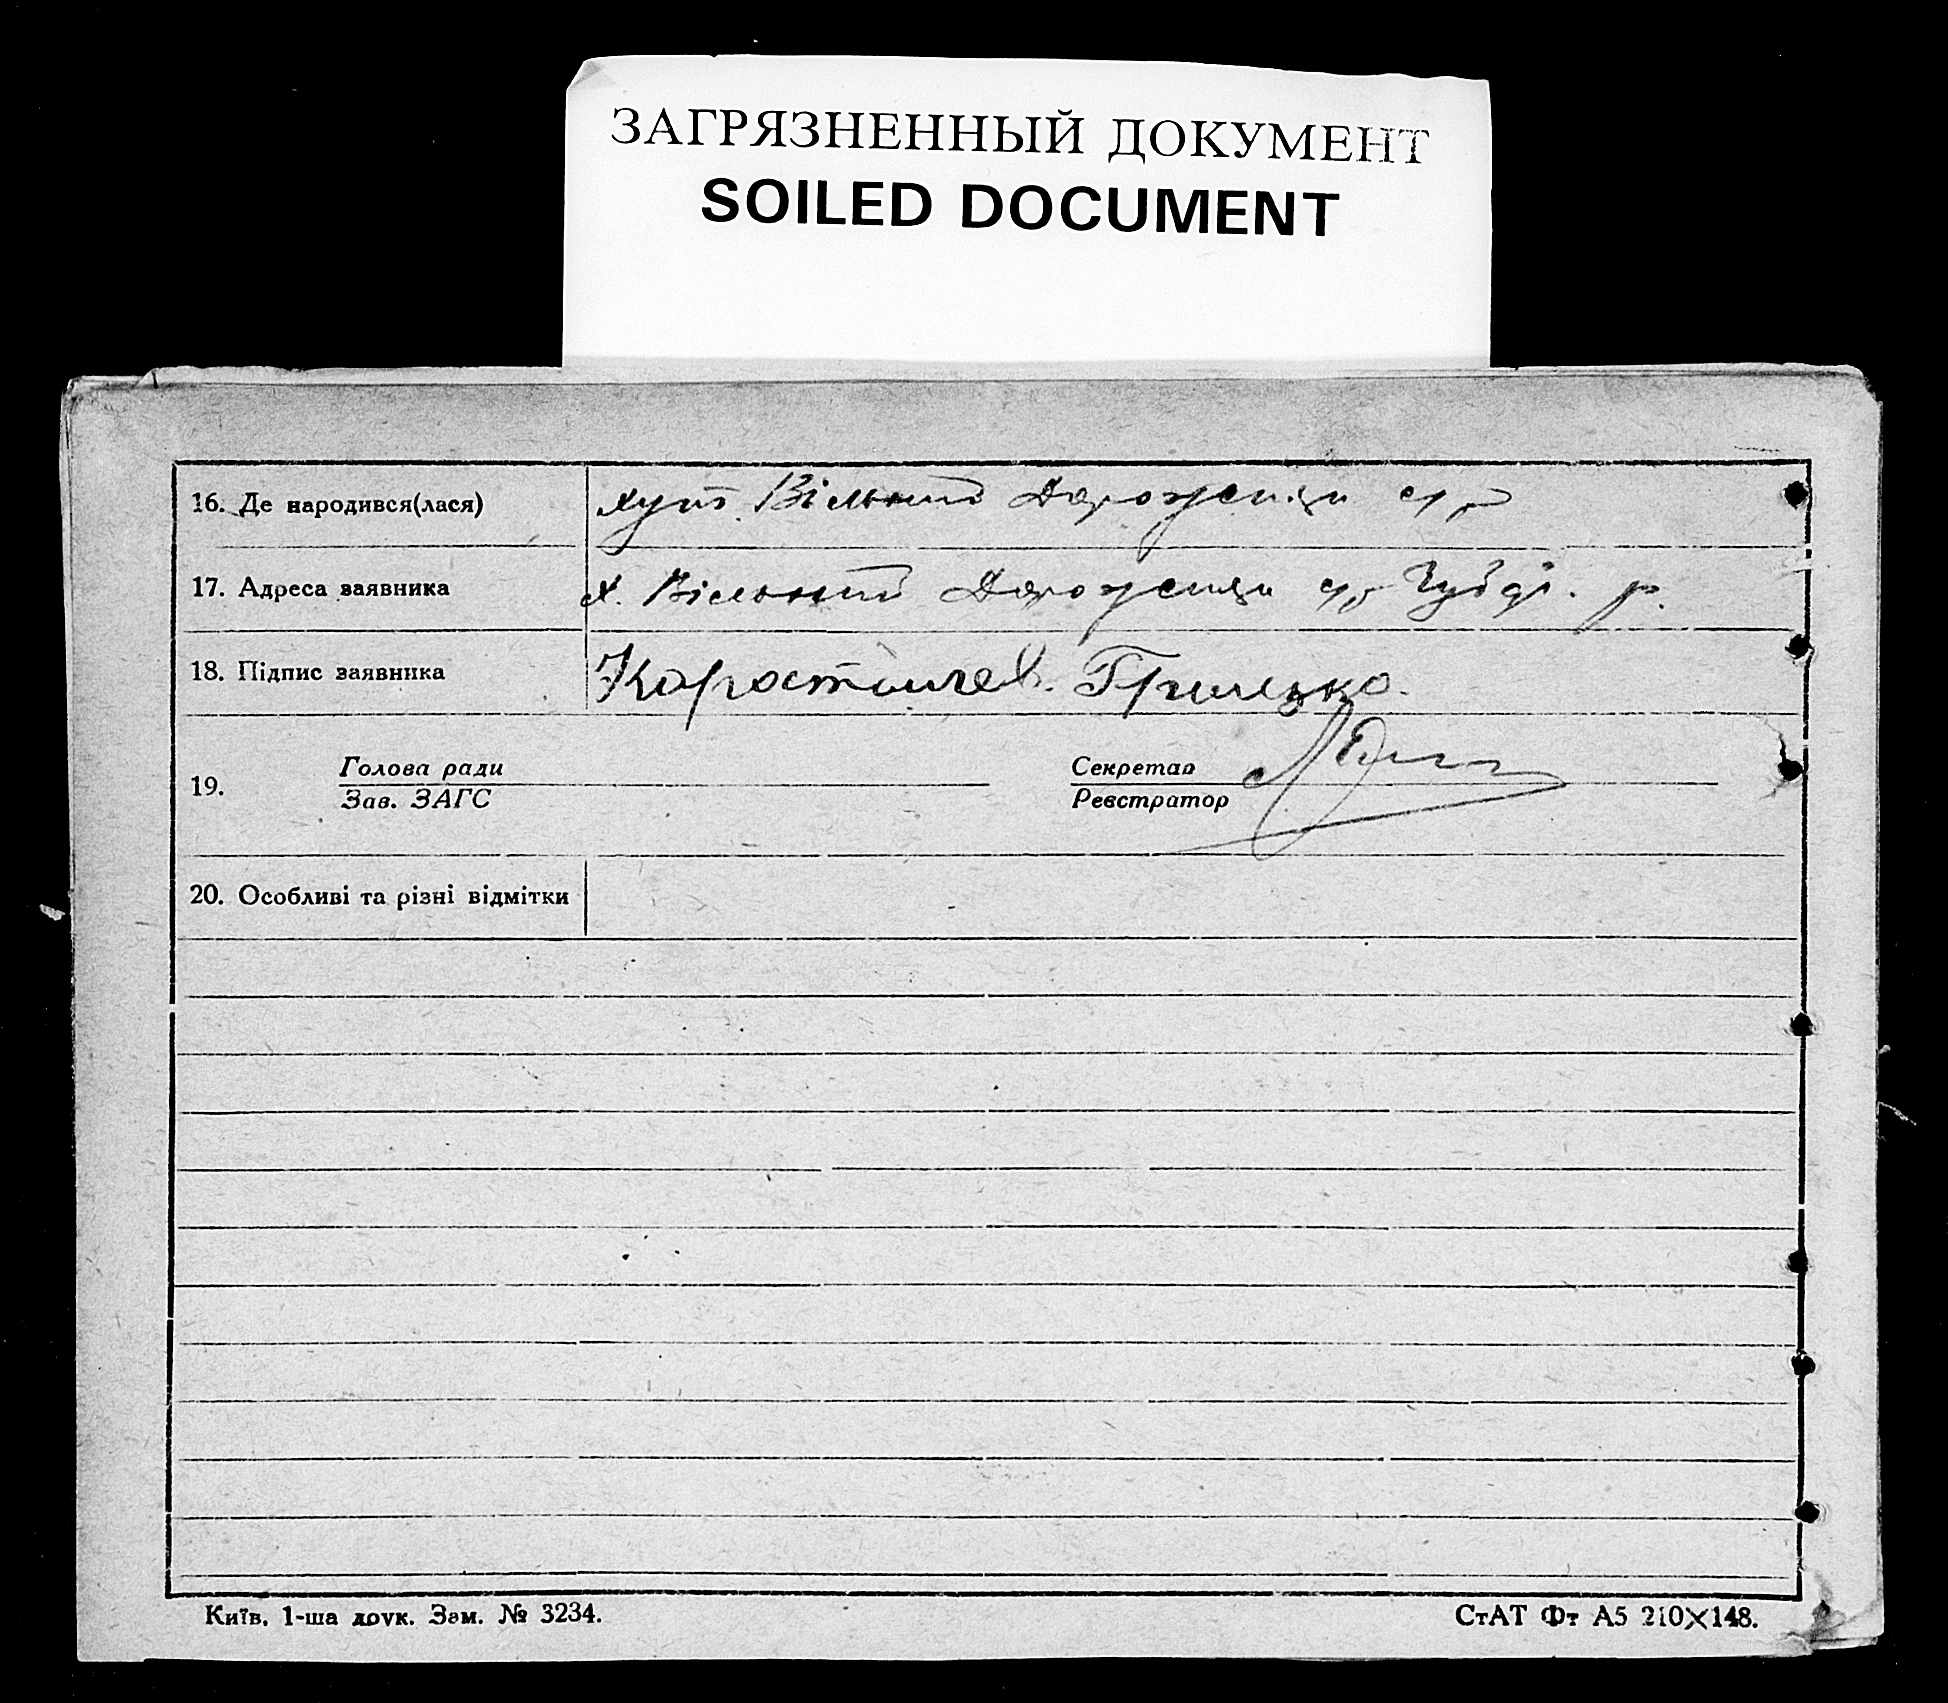 ЗАГРЯЗНЕННЫЙ ДОКУМЕНТ
SOILED DOCUMENT
16. Де народився(лася) хут. Вільний
17. Адреса заявника х. Вільний р.
18. Підпис заявника Каростишев. Грицько.
19. Голова ради Секретар
Зав. ЗАГС Реєстратор
20. Особливі та різні відмітки
Київ, 1-ша друк. Зам. № 3234. СтАТ Фт А5 210×148.